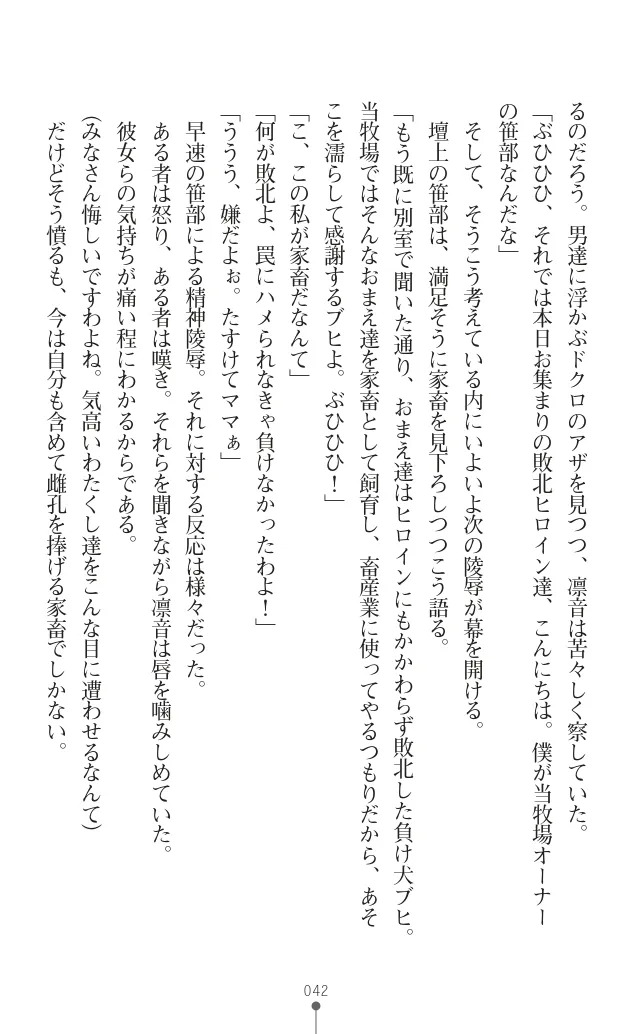 るのだろう。男達に浮かぶドクロのアザを見つつ、凛音は苦々しく察していた。
「ぶひひひ、それでは本日お集まりの敗北ヒロイン達、こんにちは。僕が当牧場オーナー
の笹部なんだな」
そして、そうこう考えている内にいよいよ次の陵辱が幕を開ける。
壇上の笹部は、満足そうに家畜を見下ろしつつこう語る。
「もう既に別室で聞いた通り、おまえ達はヒロインにもかかわらず敗北した負け犬ブヒ。
当牧場ではそんなおまえ達を家畜として飼育し、畜産業に使ってやるつもりだから、あそ
こを濡らして感謝するブヒよ。ぶひひひ！」
「こ、この私が家畜だなんて」
「何が敗北よ、罠にハメられなきゃ負けなかったわよ！」
「ううう、嫌だよぉ。たすけてママぁ」
早速の笹部による精神陵辱。それに対する反応は様々だった。
ある者は怒り、ある者は嘆き。それらを聞きながら凛音は唇を噛みしめていた。
彼女らの気持ちが痛い程にわかるからである。
（みなさん悔しいですわよね。気高いわたくし達をこんな目に遭わせるなんて）
だけどそう憤るも、今は自分も含めて雌孔を捧げる家畜でしかない。
042